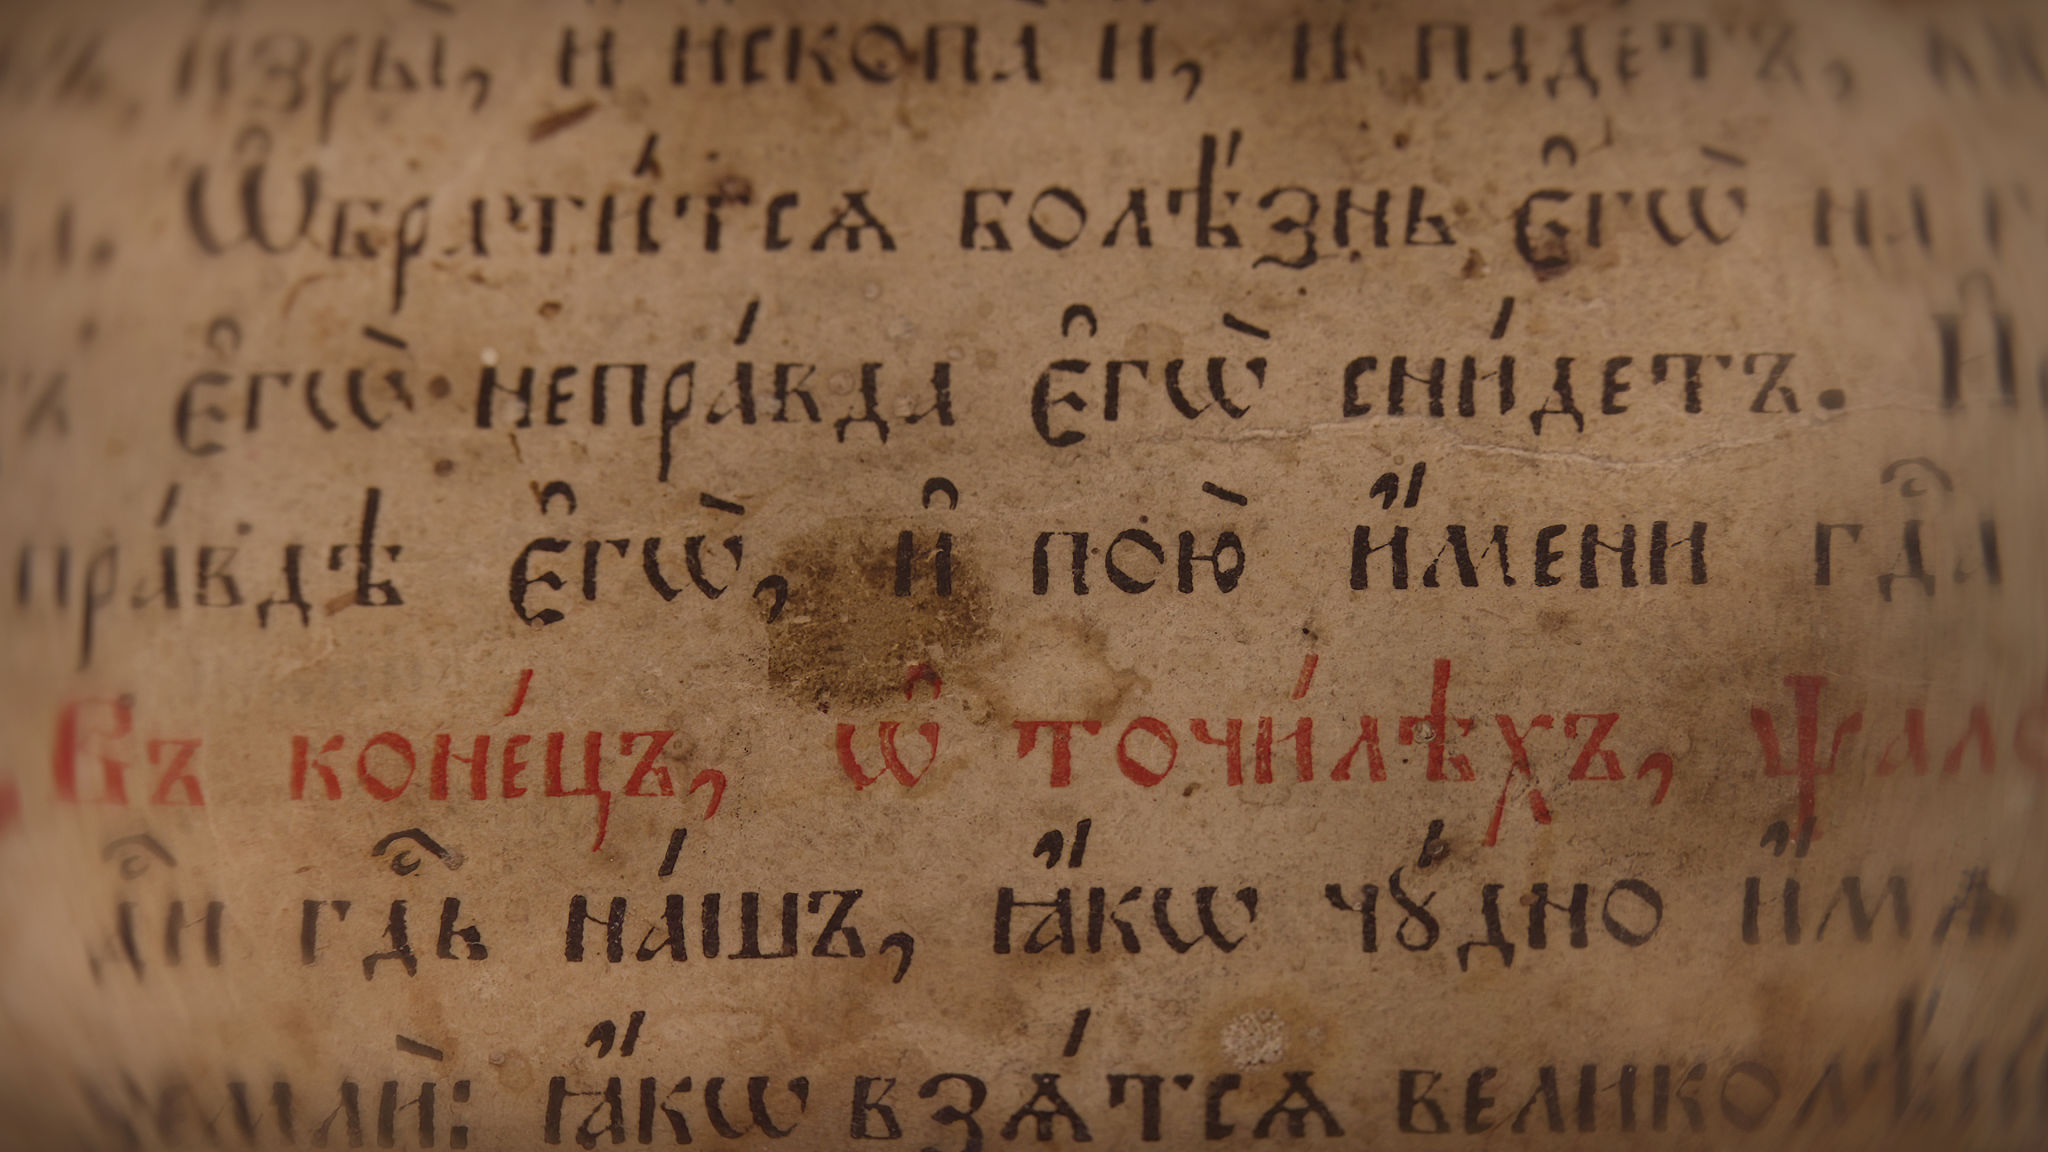 и҆зры̀, и҆ и҆скопа̀ и҆, и҆ паде́тъ,
Ѡ҆брати́тсѧ болѣ́знь є҆гѡ̀ на
є҆гѡ̀ непра́вда є҆гѡ̀ сни́детъ.
пра́вдѣ є҆гѡ̀, и҆ пою̀ и҆́мени гдⷭ҇а
Въ коне́цъ, ѡ҆ точи́лѣхъ,
гдⷭ҇ь на́шъ, ꙗ҆́кѡ чꙋ́дно и҆́мѧ
землѝ: ꙗ҆́кѡ взѧ́тсѧ